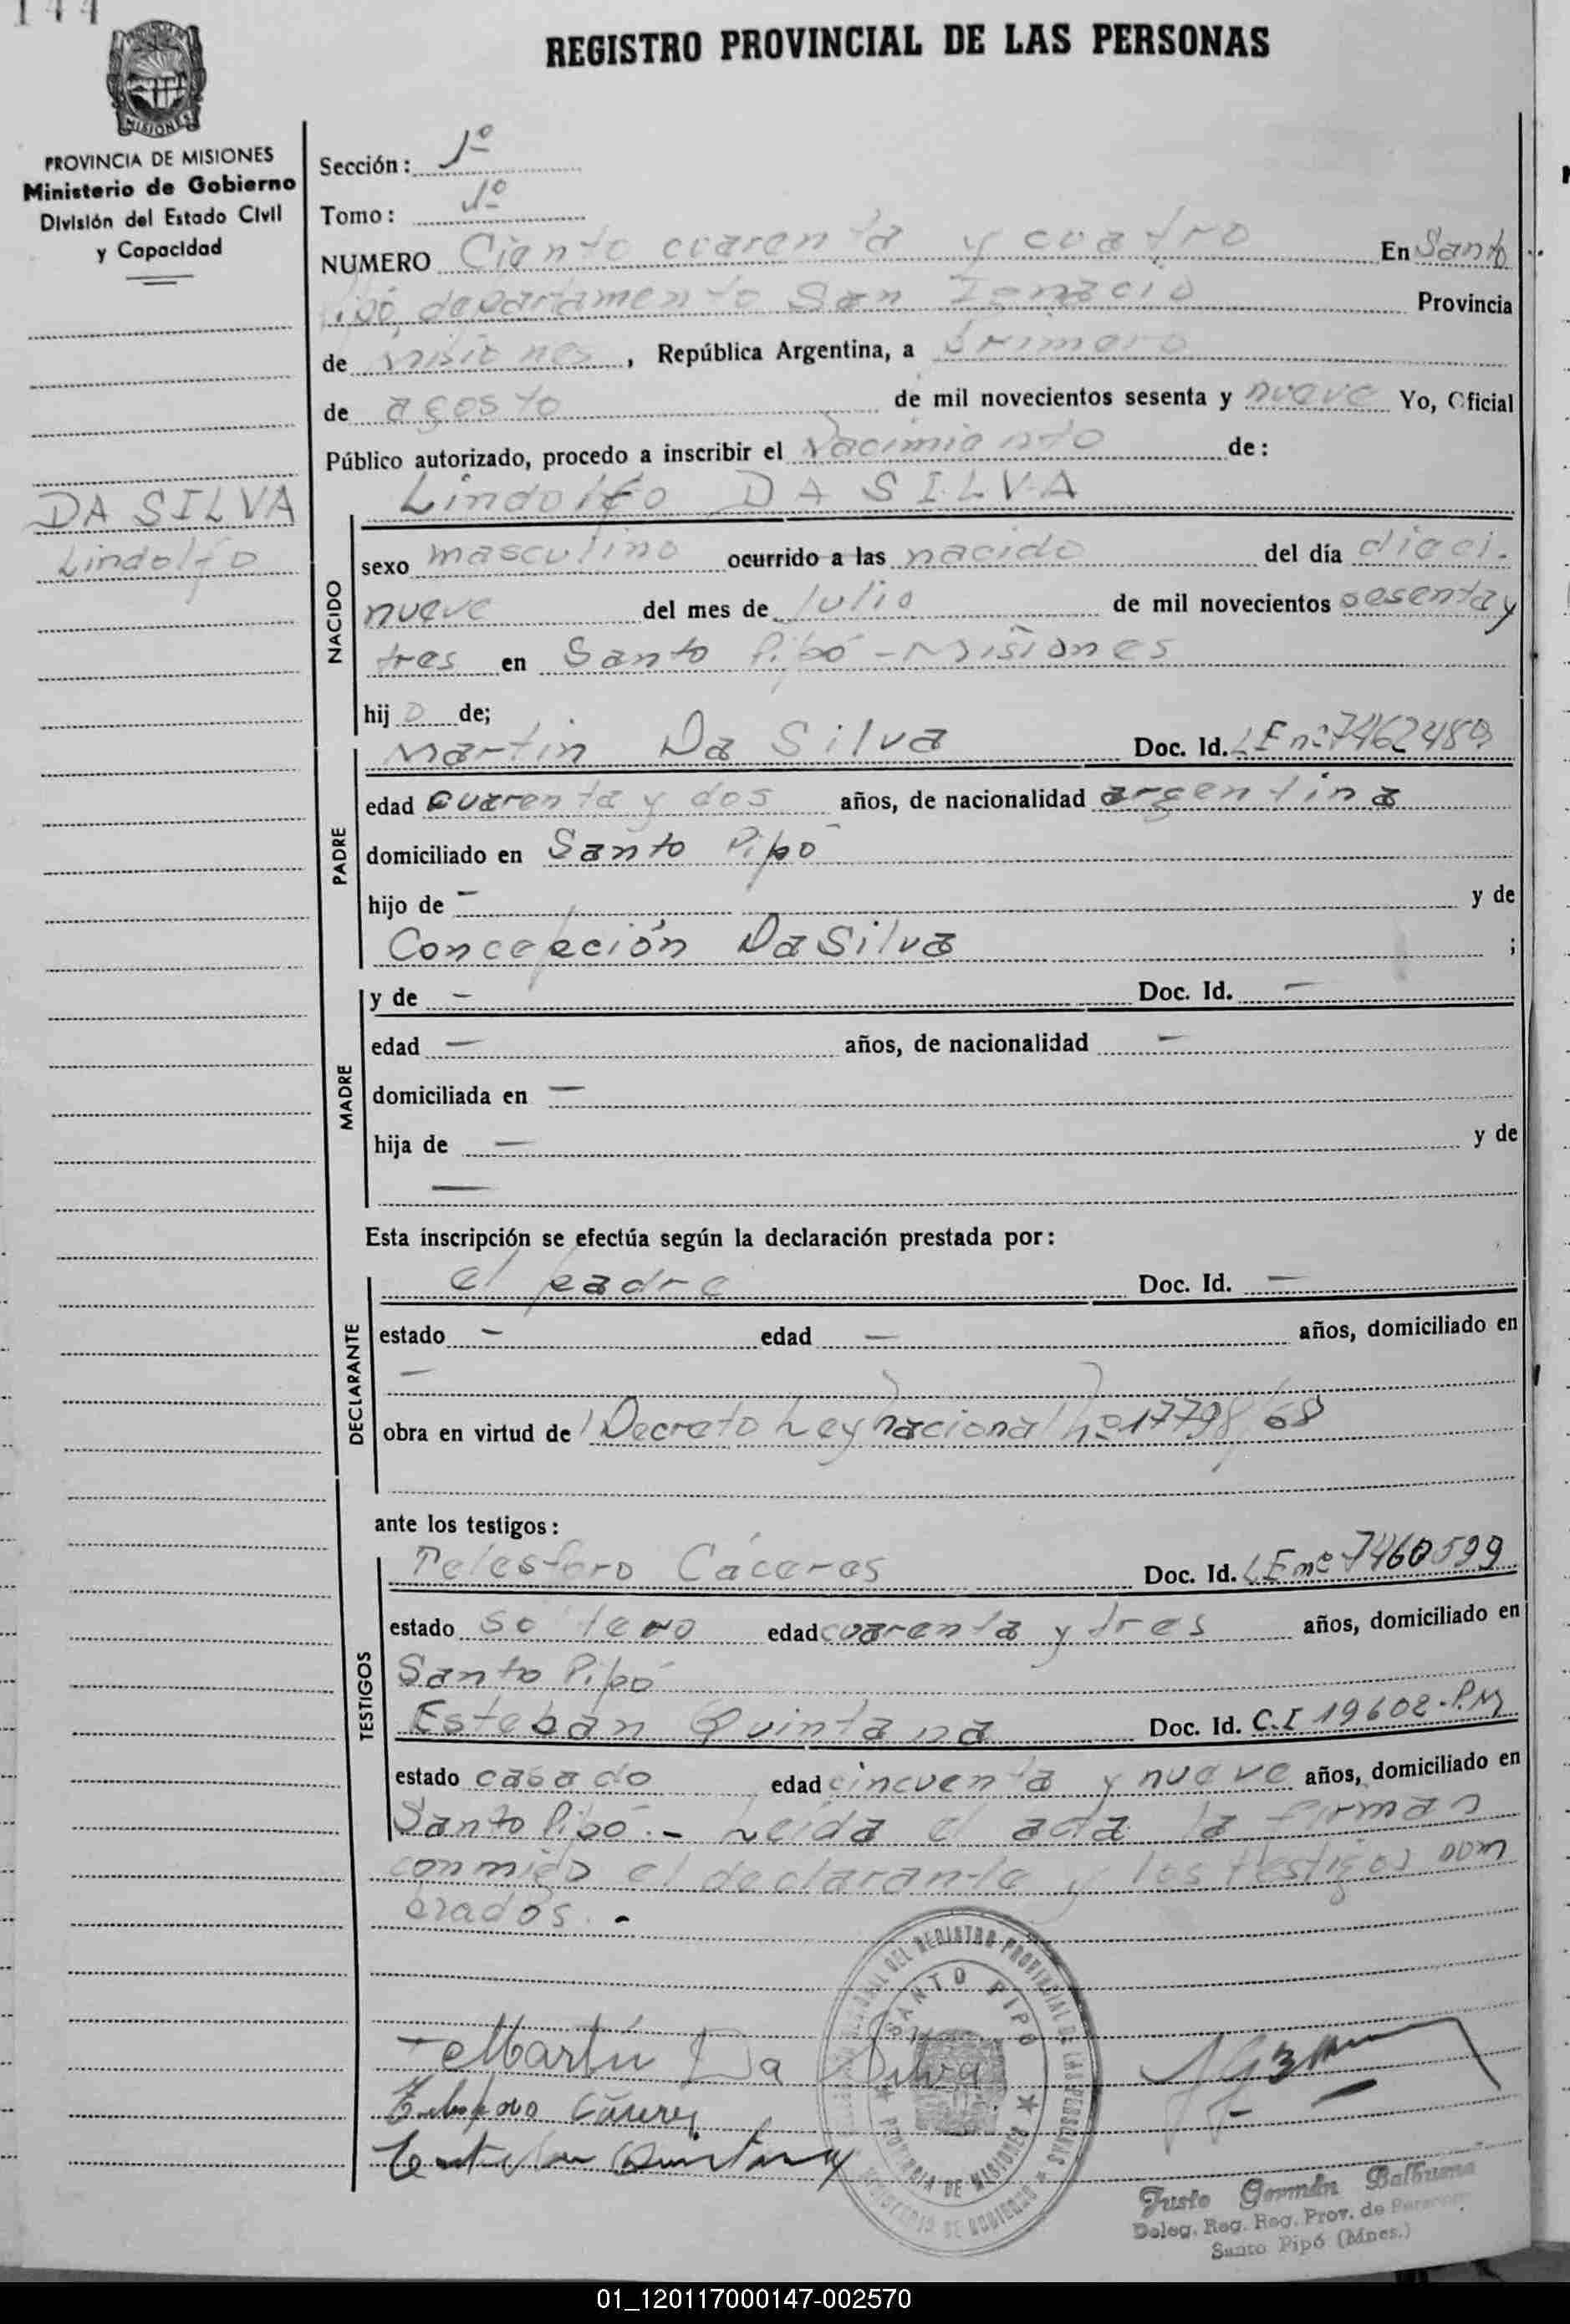 144
REGISTRO PROVINCIAL DE LAS PERSONAS
MISIONES
PROVINCIA DE MISIONES
Ministerio de Gobierno
División del Estado Civil
y Capacidad
DA SILVA
Lindolfo
Sección: 1º
Tomo: 1º
NUMERO Ciento cuarenta y cuatro En Santo
Pipó, departamento San Ignacio Provincia
de Misiones, República Argentina, a primero
de agosto de mil novecientos sesenta y nueve Yo, Oficial
Público autorizado, procedo a inscribir el Nacimiento de:
Lindolfo DA SILVA
NACIDO
sexo masculino ocurrido a las nacido del día dieci-
nueve del mes de Julio de mil novecientos sesenta y
tres en Santo Pipó - Misiones
hijo de;
PADRE
Martin Da Silva Doc. Id. LE nº 7462489
edad cuarenta y dos años, de nacionalidad argentina
domiciliado en Santo Pipó
hijo de - y de
Concepción Da Silva ;
MADRE
y de - Doc. Id. -
edad - años, de nacionalidad -
domiciliada en -
hija de - y de
-
Esta inscripción se efectúa según la declaración prestada por:
DECLARANTE
el padre Doc. Id. -
estado - edad - años, domiciliado en
-
obra en virtud de Decreto Ley nacional nº 17798/68
ante los testigos:
TESTIGOS
Telesforo Cáceres Doc. Id. LE nº 7460599
estado soltero edad cuarenta y tres años, domiciliado en
Santo Pipó
Esteban Quintana Doc. Id. C.I 19602-P.M
estado casado edad cincuenta y nueve años, domiciliado en
Santo Pipó.- Leída el acta la firman
conmigo el declarante y los testigos nom
brados.-
Martín Da Silva
Telesforo Cáceres
Esteban Quintana
DEL REGISTRO PROVINCIAL DE LAS PERSONAS
SANTO PIPO
PROVINCIA DE MISIONES
MINISTERIO DE GOBIERNO
Justo Germán Balbuena
Deleg. Reg. Reg. Prov. de Personas
Santo Pipó (Mnes.)
01_120117000147-002570